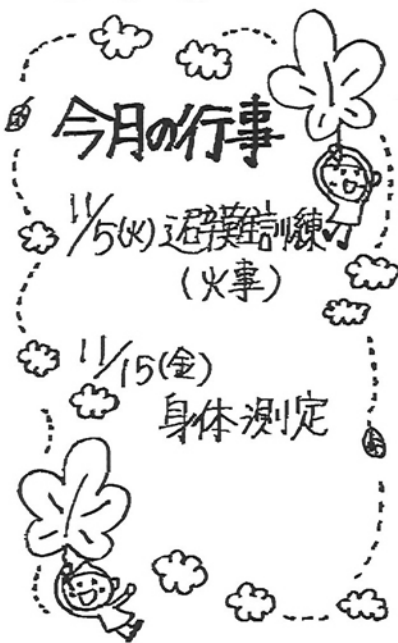 今月の行事
11/5(火)避難訓練
(火事)
11/15(金)
身体測定